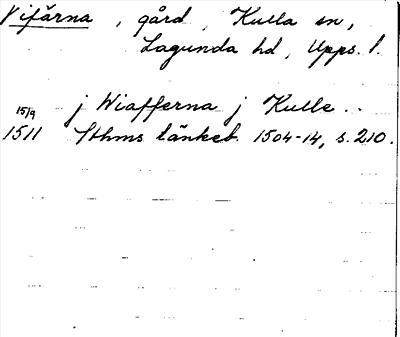 Vifärna, gård, Kulla sn,
Lagunda hd, Upps. l.
j Wiafferna j Kulle ..
15/9
1511 Sthms tänkeb. 1504-14, s. 210.